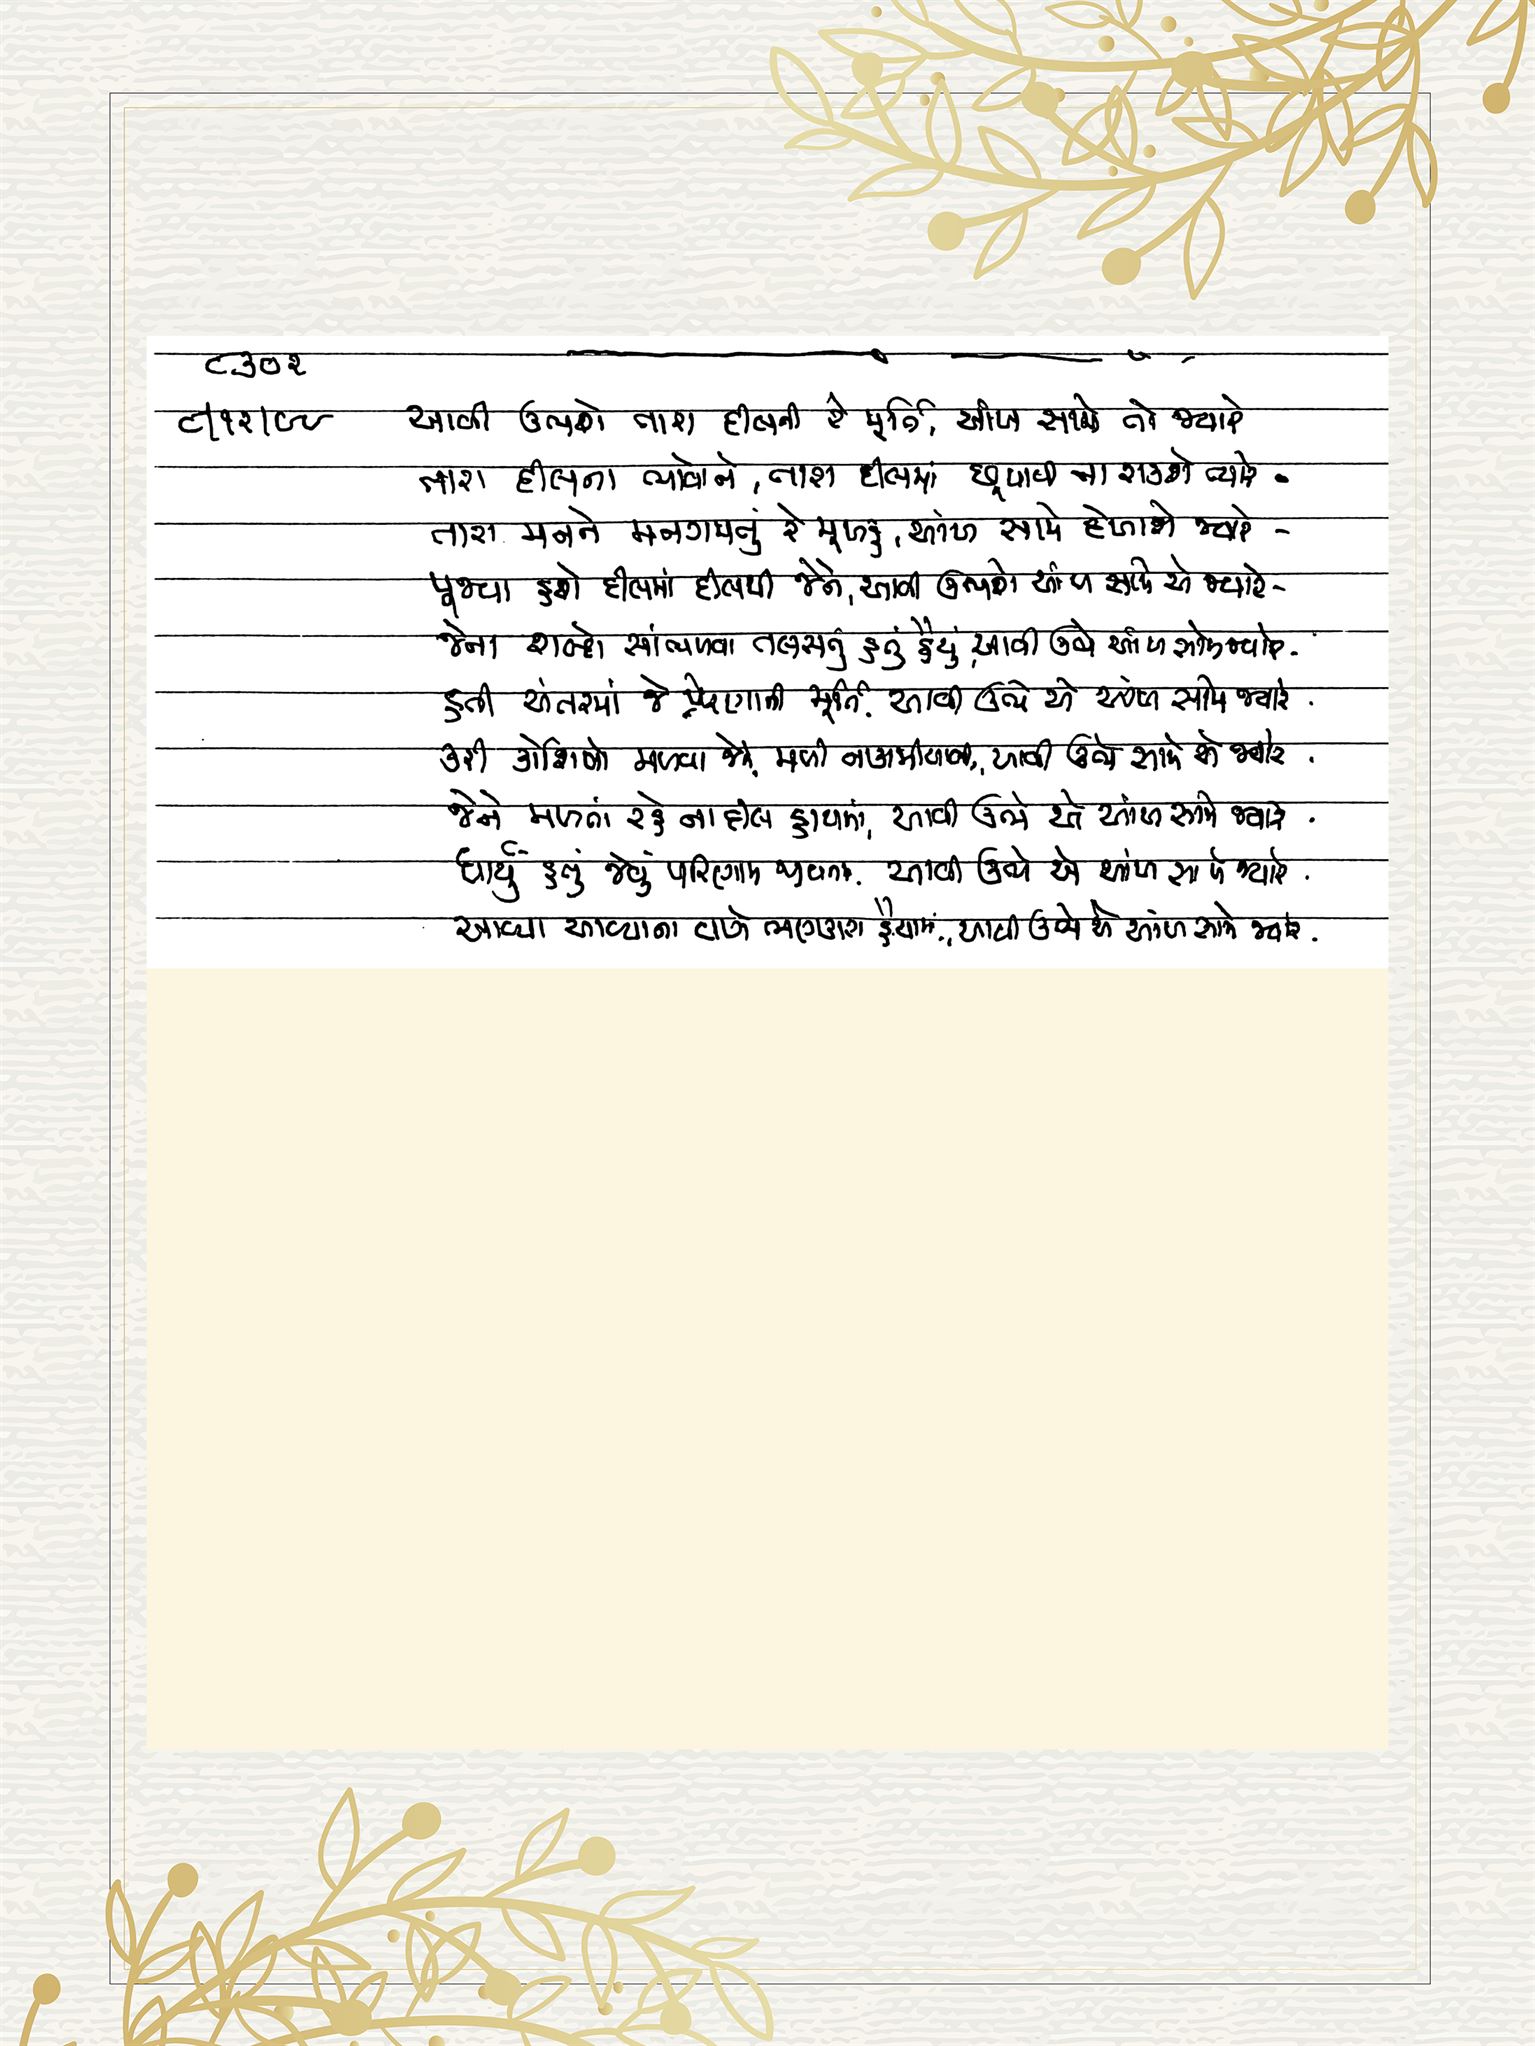 ૮૩૦૨
આવી ઉભશે તારા દીલની રે મૂર્તિ, આંખ સામે તો જ્યારે
તારા દીલના ભાવોને, તારા દીલમાં છૂપાવી ના શકશો ત્યારે
તારા મનને મનગમતું રે મૂખડું, આંખ સામે દેખાશે જ્યારે -
પૂજ્યા હશે દીલમાં દીલથી જેને, આવી ઉભશે આંખ સામે એ જ્યારે -
જેના શબ્દો સાંભળવા તલસતું હતું હૈયું, આવી ઉભે આંખ સામે જ્યારે.
હતી અંતરમાં જે પ્રેરણાની મૂર્તિ. આવી ઉભે એ આંખ સામે જ્યારે.
કરી કોશિશો મળવા જેને, મળી આવી ઉભે સામે એ જ્યારે.
જેને મળતાં રહે ના દીલ હાથમાં, આવી ઉભે એ આંખ સામે જ્યારે.
ધાર્યું હતું જેવું પરિણામ આવી ઉભે એ આંખ સામે જ્યારે.
આવ્યા આવ્યાના વાગે ભણકારા હૈયામાં, આવી ઉભે એ આંખ સામે જ્યારે.